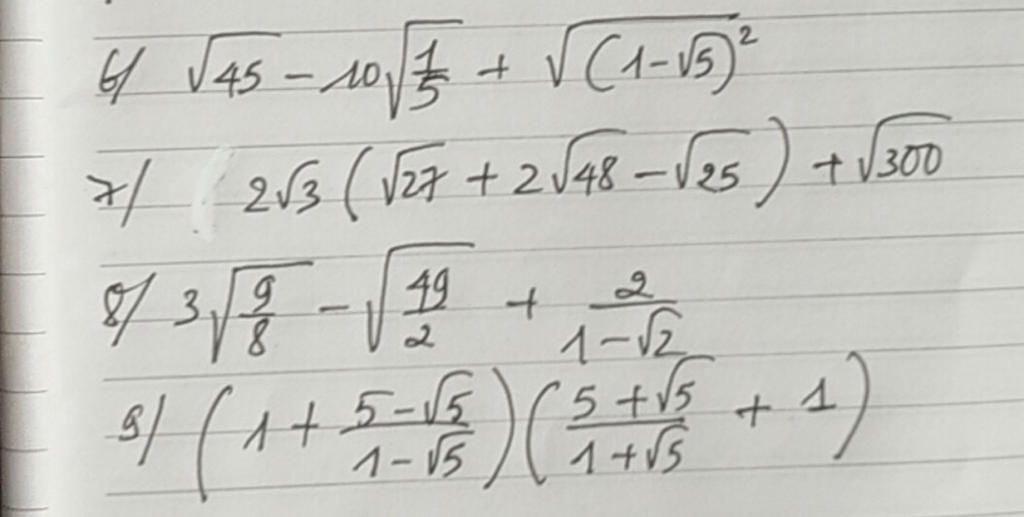 6/ √45 − 10√(1/5) + √((1−√5)²)
7/ 2√3 (√27 + 2√48 − √25) + √300
8/ 3√(9/8) − √(49/2) + 2/(1−√2)
9/ (1 + (5−√5)/(1−√5)) ((5+√5)/(1+√5) + 1)